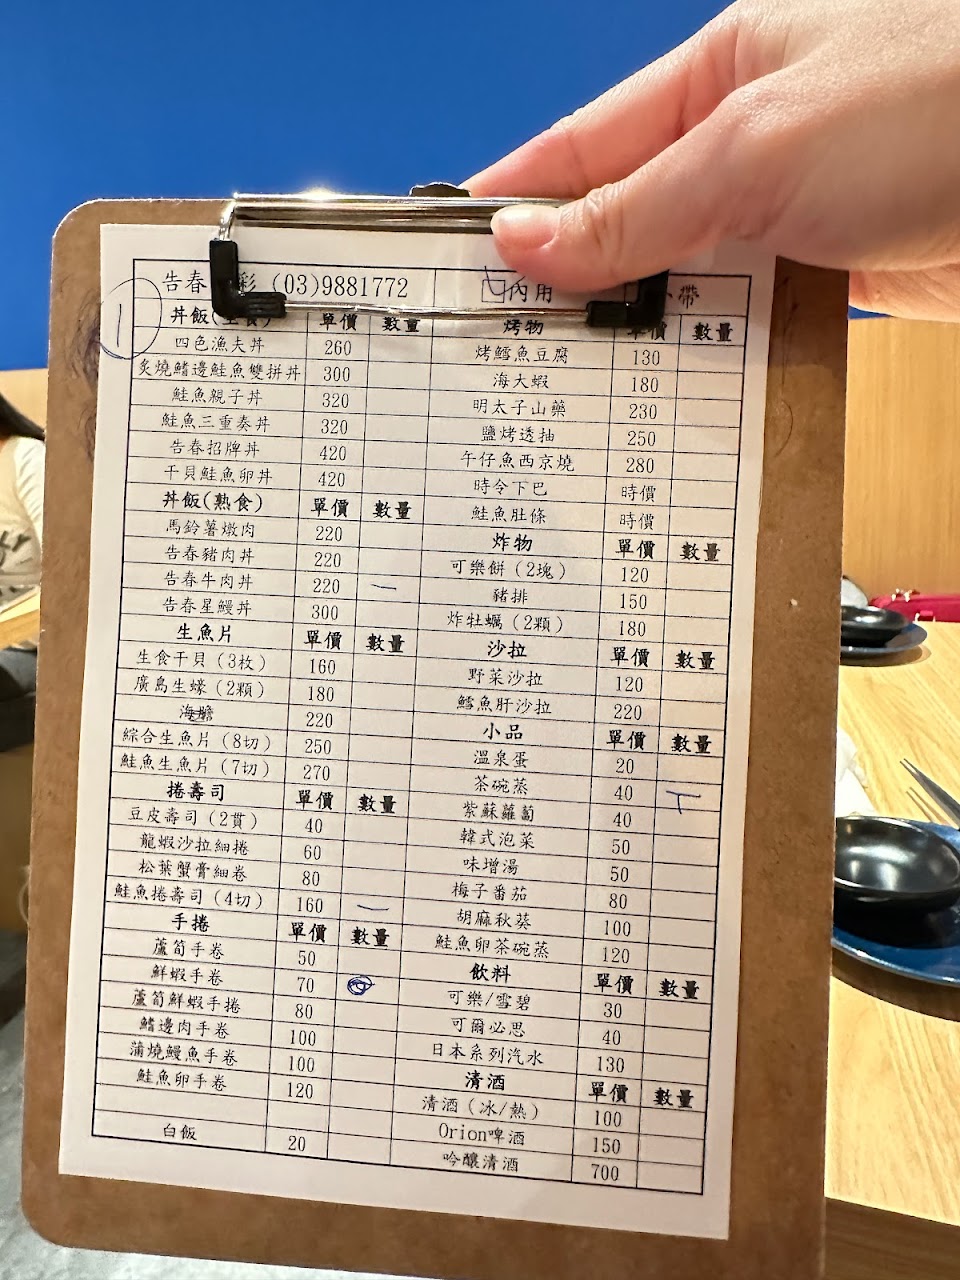 告春 彩 (03)9881772 內用 帶
1
丼飯(生食) 單價 數量
四色漁夫丼 260
炙燒鰭邊鮭魚雙拼丼 300
鮭魚親子丼 320
鮭魚三重奏丼 320
告春招牌丼 420
干貝鮭魚卵丼 420
丼飯(熟食) 單價 數量
馬鈴薯燉肉 220
告春豬肉丼 220
告春牛肉丼 220 一
告春星鰻丼 300
生魚片 單價 數量
生食干貝(3枚) 160
廣島生蠔(2顆) 180
海膽 220
綜合生魚片(8切) 250
鮭魚生魚片(7切) 270
捲壽司 單價 數量
豆皮壽司(2貫) 40
龍蝦沙拉細捲 60
松葉蟹膏細卷 80
鮭魚捲壽司(4切) 160 一
手捲 單價 數量
蘆筍手卷 50
鮮蝦手卷 70
蘆筍鮮蝦手捲 80
鰭邊肉手卷 100
蒲燒鰻魚手卷 100
鮭魚卵手卷 120
白飯 20
烤物 單價 數量
烤鱈魚豆腐 130
海大蝦 180
明太子山藥 230
鹽烤透抽 250
午仔魚西京燒 280
時令下巴 時價
鮭魚肚條 時價
炸物 單價 數量
可樂餅(2塊) 120
豬排 150
炸牡蠣(2顆) 180
沙拉 單價 數量
野菜沙拉 120
鱈魚肝沙拉 220
小品 單價 數量
溫泉蛋 20
茶碗蒸 40 T
紫蘇蘿蔔 40
韓式泡菜 50
味增湯 50
梅子番茄 80
胡麻秋葵 100
鮭魚卵茶碗蒸 120
飲料 單價 數量
可樂/雪碧 30
可爾必思 40
日本系列汽水 130
清酒 單價 數量
清酒(冰/熱) 100
Orion啤酒 150
吟釀清酒 700